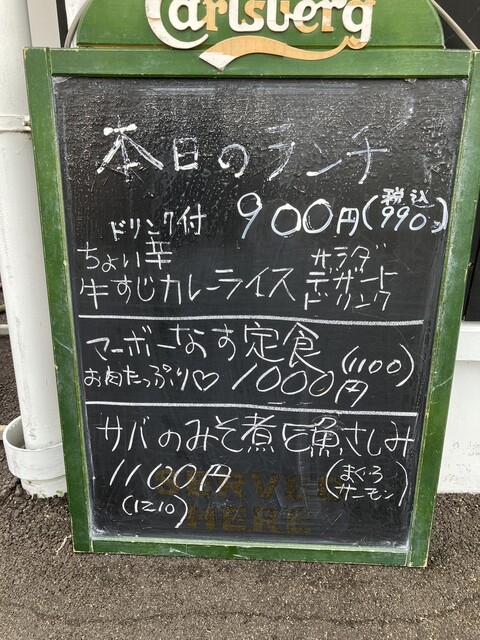 Carlsberg
本日のランチ
ドリンク付 900円(税込990)
ちょい辛
牛すじカレーライス
サラダ
デザート
ドリンク
マーボーなす定食
お肉たっぷり♡ 1000円 (1100)
サバのみそ煮と漁さしみ
1100円 (まぐろ
サーモン)
(1210)
SERVED
HERE